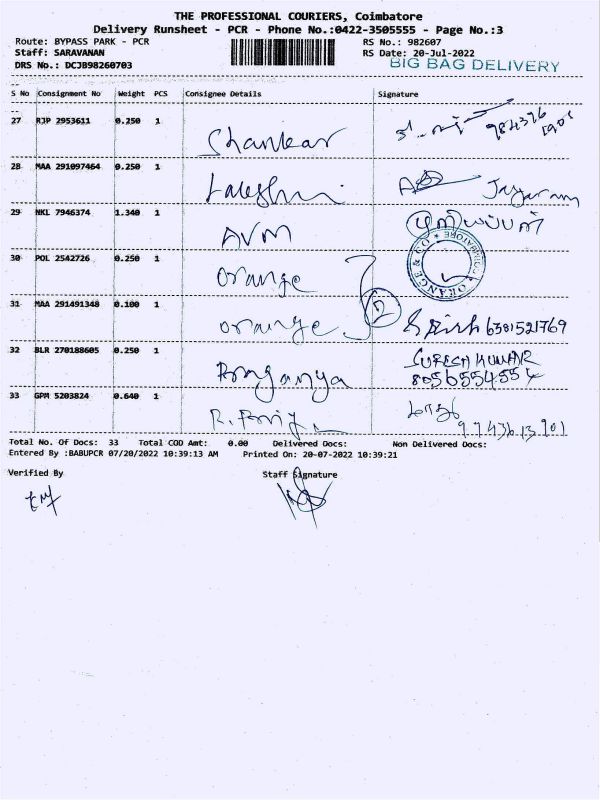 THE PROFESSIONAL COURIERS, Coimbatore
Delivery Runsheet - PCR - Phone No.:0422-3505555 - Page No.:3
Route: BYPASS PARK - PCR RS No.: 982607
Staff: SARAVANAN RS Date: 20-Jul-2022
DRS No.: DCJB98260703 BIG BAG DELIVERY
S No Consignment No Weight PCS Consignee Details Signature
27 RJP 2953611 0.250 1 Shankar
28 MAA 291097464 0.250 1 Lakshmi Jayaram
29 NKL 7946374 1.340 1 AVM
30 POL 2542726 0.250 1 Orange ORANGE & CO * COIMBATORE *
31 MAA 291491348 0.100 1 Orange 2 6381521769
32 BLR 270188605 0.250 1 SURESH KUMAR
8056554554
33 GPM 5203824 0.640 1
Total No. Of Docs: 33 Total COD Amt: 0.00 Delivered Docs: Non Delivered Docs:
Entered By :BABUPCR 07/20/2022 10:39:13 AM Printed On: 20-07-2022 10:39:21
Verified By Staff Signature